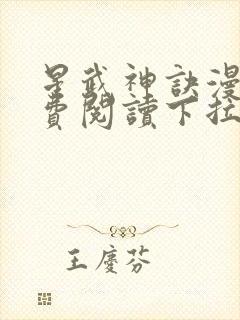 星武神訣漫
費閱讀下拉
王慶芬